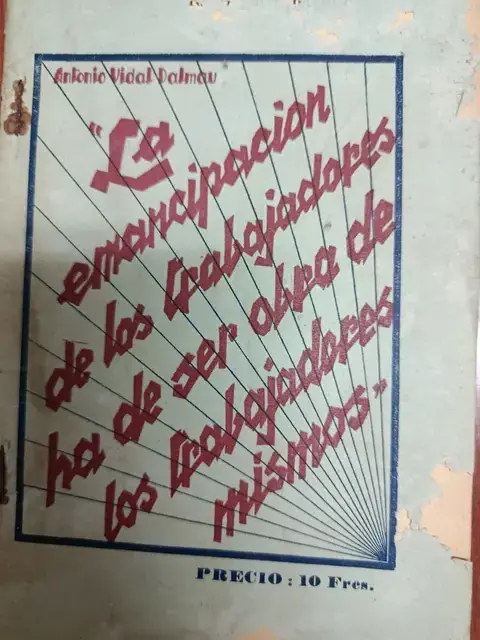 Antonio Vidal Dalmau
"La
emancipacion
de los trabajadores
ha de ser obra de
los trabajadores
mismos"
PRECIO : 10 Frcs.